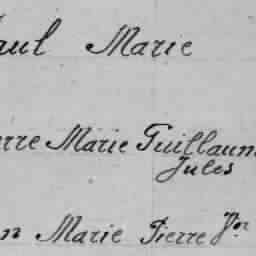 aul Marie
erre Marie Guillaum
Jules
n Marie Pierre